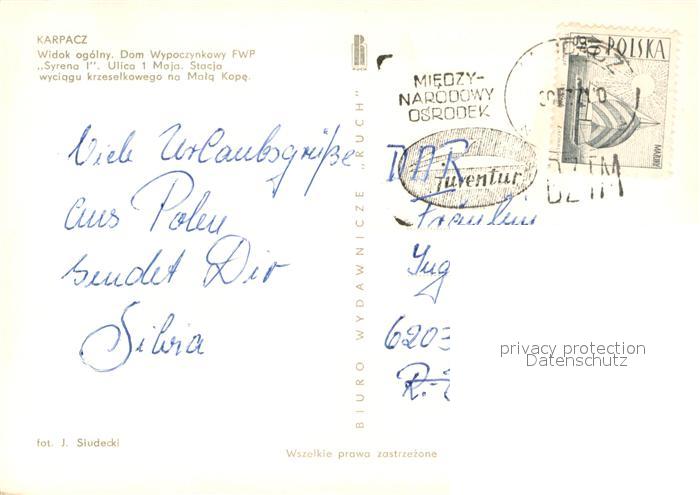 KARPACZ
Widok ogólny. Dom Wypoczynkowy FWP
„Syrena I”. Ulica 1 Maja. Stacja
wyciągu krzesełkowego na Małą Kopę.
Viele Urlaubsgrüße
aus Polen
sendet Dir
Silvia
fot. J. Słudecki
BIURO WYDAWNICZE „RUCH”
Wszelkie prawa zastrzeżone
MIĘDZY-
NARODOWY
OŚRODEK
juventur
POLSKA
DDR
Fräulein
Ing
6203
privacy protection
Datenschutz